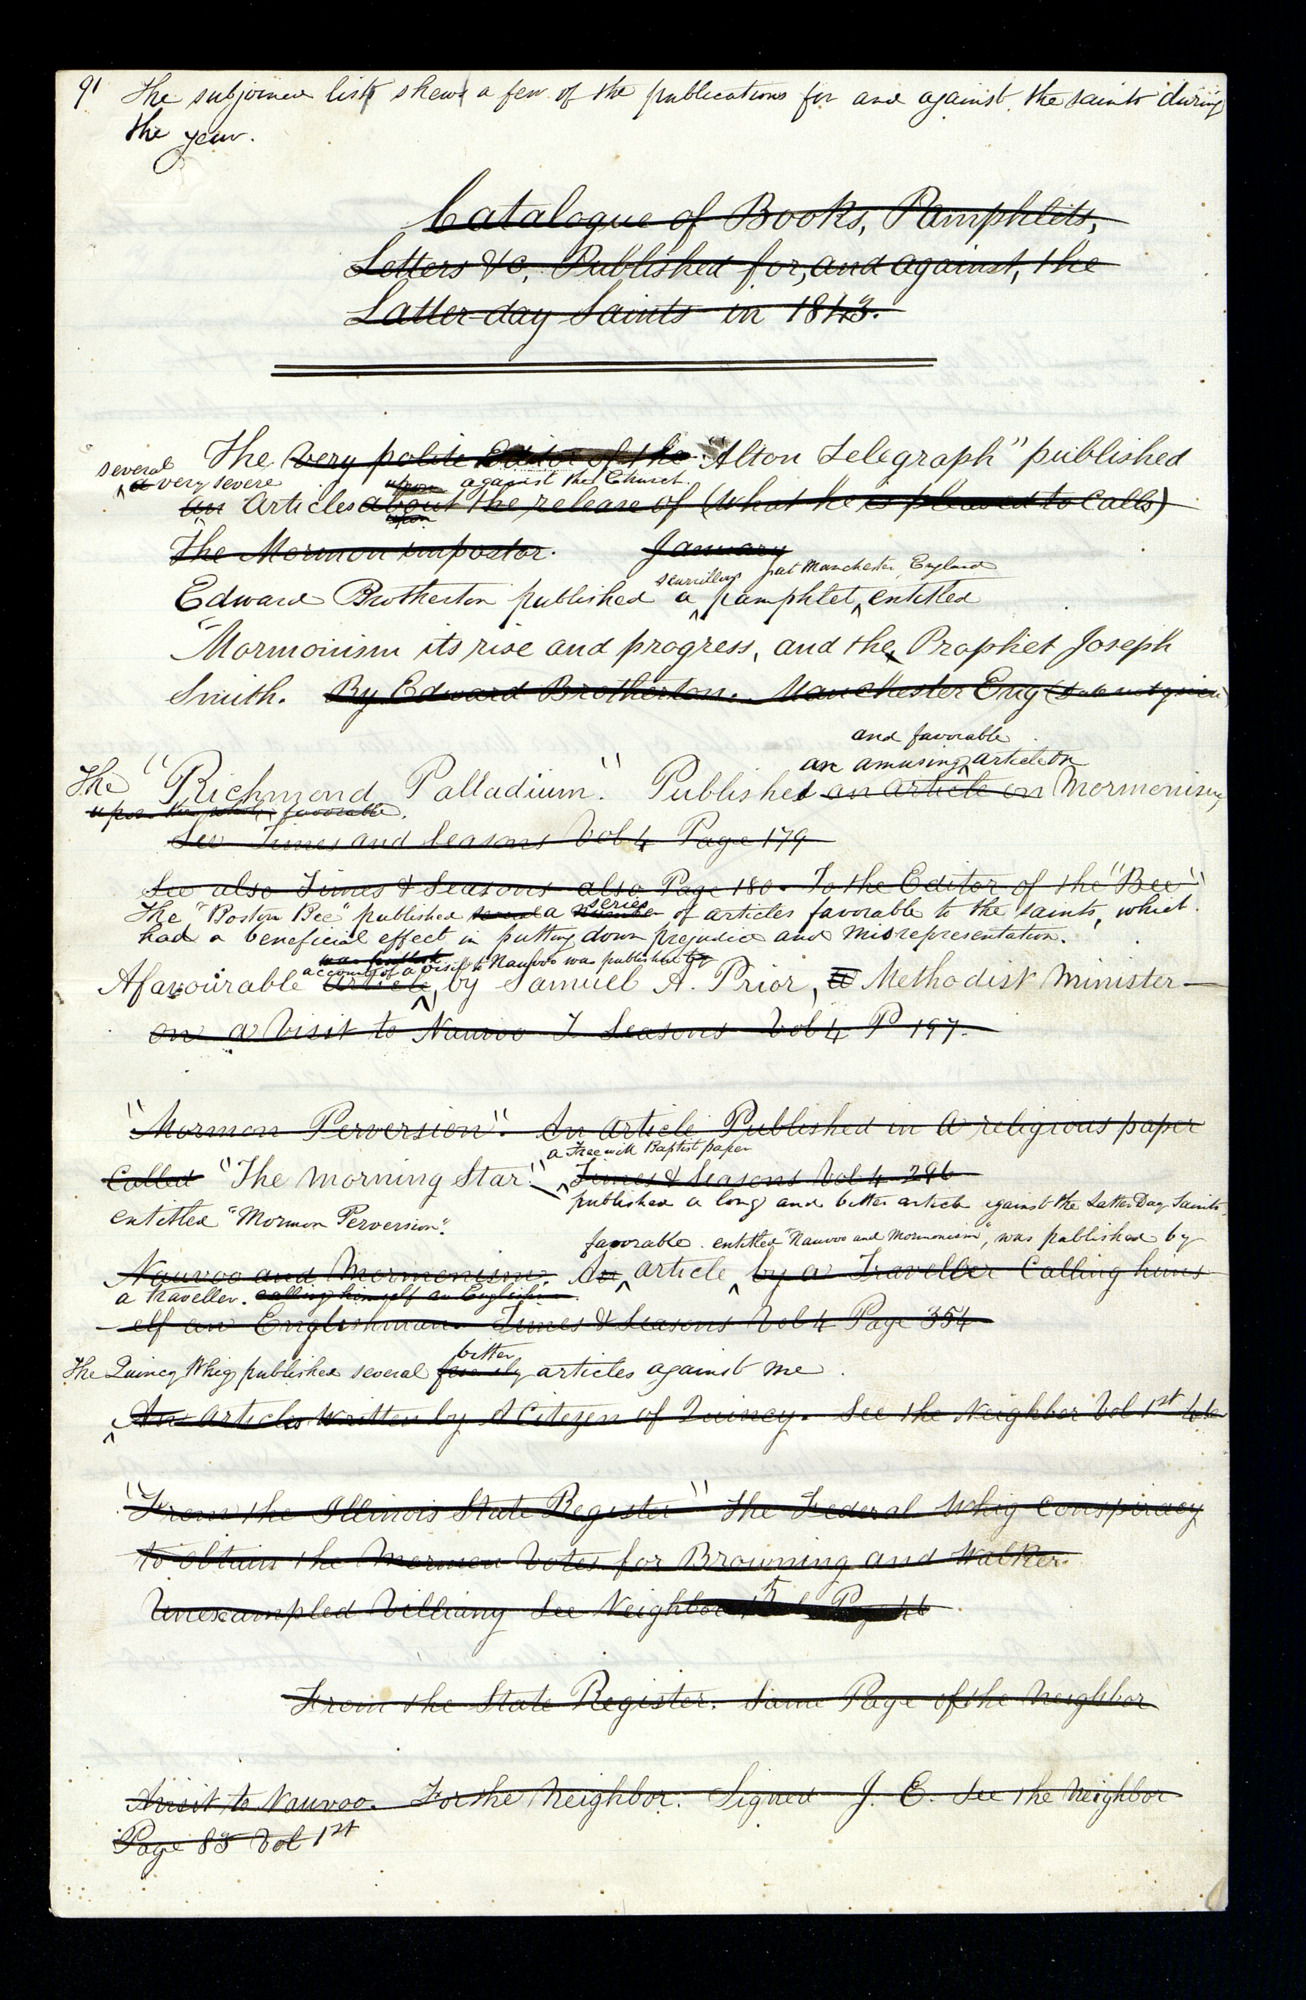 91 The subjoined list shews a few of the publications for and against the saints during
the year.
Catalogue of Books, Pamphlets,
Letters &c, Published for, and against, the
Latter-day Saints in 1843.
The very polite Editor of the "Alton Telegraph" published
several
a very severe
upon against the Church
an Articles about the release of (what he is pleased to calls)
upon
The Mormon impostor. January
scurrillous at Manchester, England
Edward Brotherton published a pamphlet, entitled
"Mormonism its rise and progress, and the Prophet Joseph
Smith. By Edward Brotherton. Manchester Eng (date not given
and favorable
an amusing article on
The "Richmond Palladium." Published an article on Mormonism,
upon the whole favorable.
See Times and Seasons Vol 4 Page 179
See also Times & Seasons also Page 180. To the Editor of the "Bee"
series
The "Boston Bee" published several a number of articles favorable to the saints, which
had a beneficial effect in putting down prejudice and misrepresentation.
was published
account of a visit to Nauvoo was published by
A favourable article, by Samuel A. Prior, a Methodist Minister—
on a Visit to Nauvoo T Seasons Vol 4 P 197.
"Mormon Perversion". An Article Published in a religious paper
a Freewill Baptist paper
Called "The Morning Star" Times & Seasons Vol 4 296
published a long and bitter article against the Latter Day Saints,
entitled "Mormon Perversion".
favorable entitled "Nauvoo and Mormonism", was published by
Nauvoo and Mormonism. An article by a Traveller Calling hims
a traveller. calling himself an Englishman
elf an Englishman. Times & Seasons Vol 4 Page 354
bitter
The Quincy Whig published several articles against me
An Articles Written by A Citizen of Quincy. See the Neighbor Vol 1st
"From the Illinois State Register" The Federal Whig Conspiracy
to obtain the Mormon Votes for Browning and Walker.
Unexampled Villiany See Neighbor Page
From the State Register. Same Page of the Neighbor
A visit to Nauvoo. For the Neighbor. Signed J. E. See the Neighbor
Page 85 Vol 1st